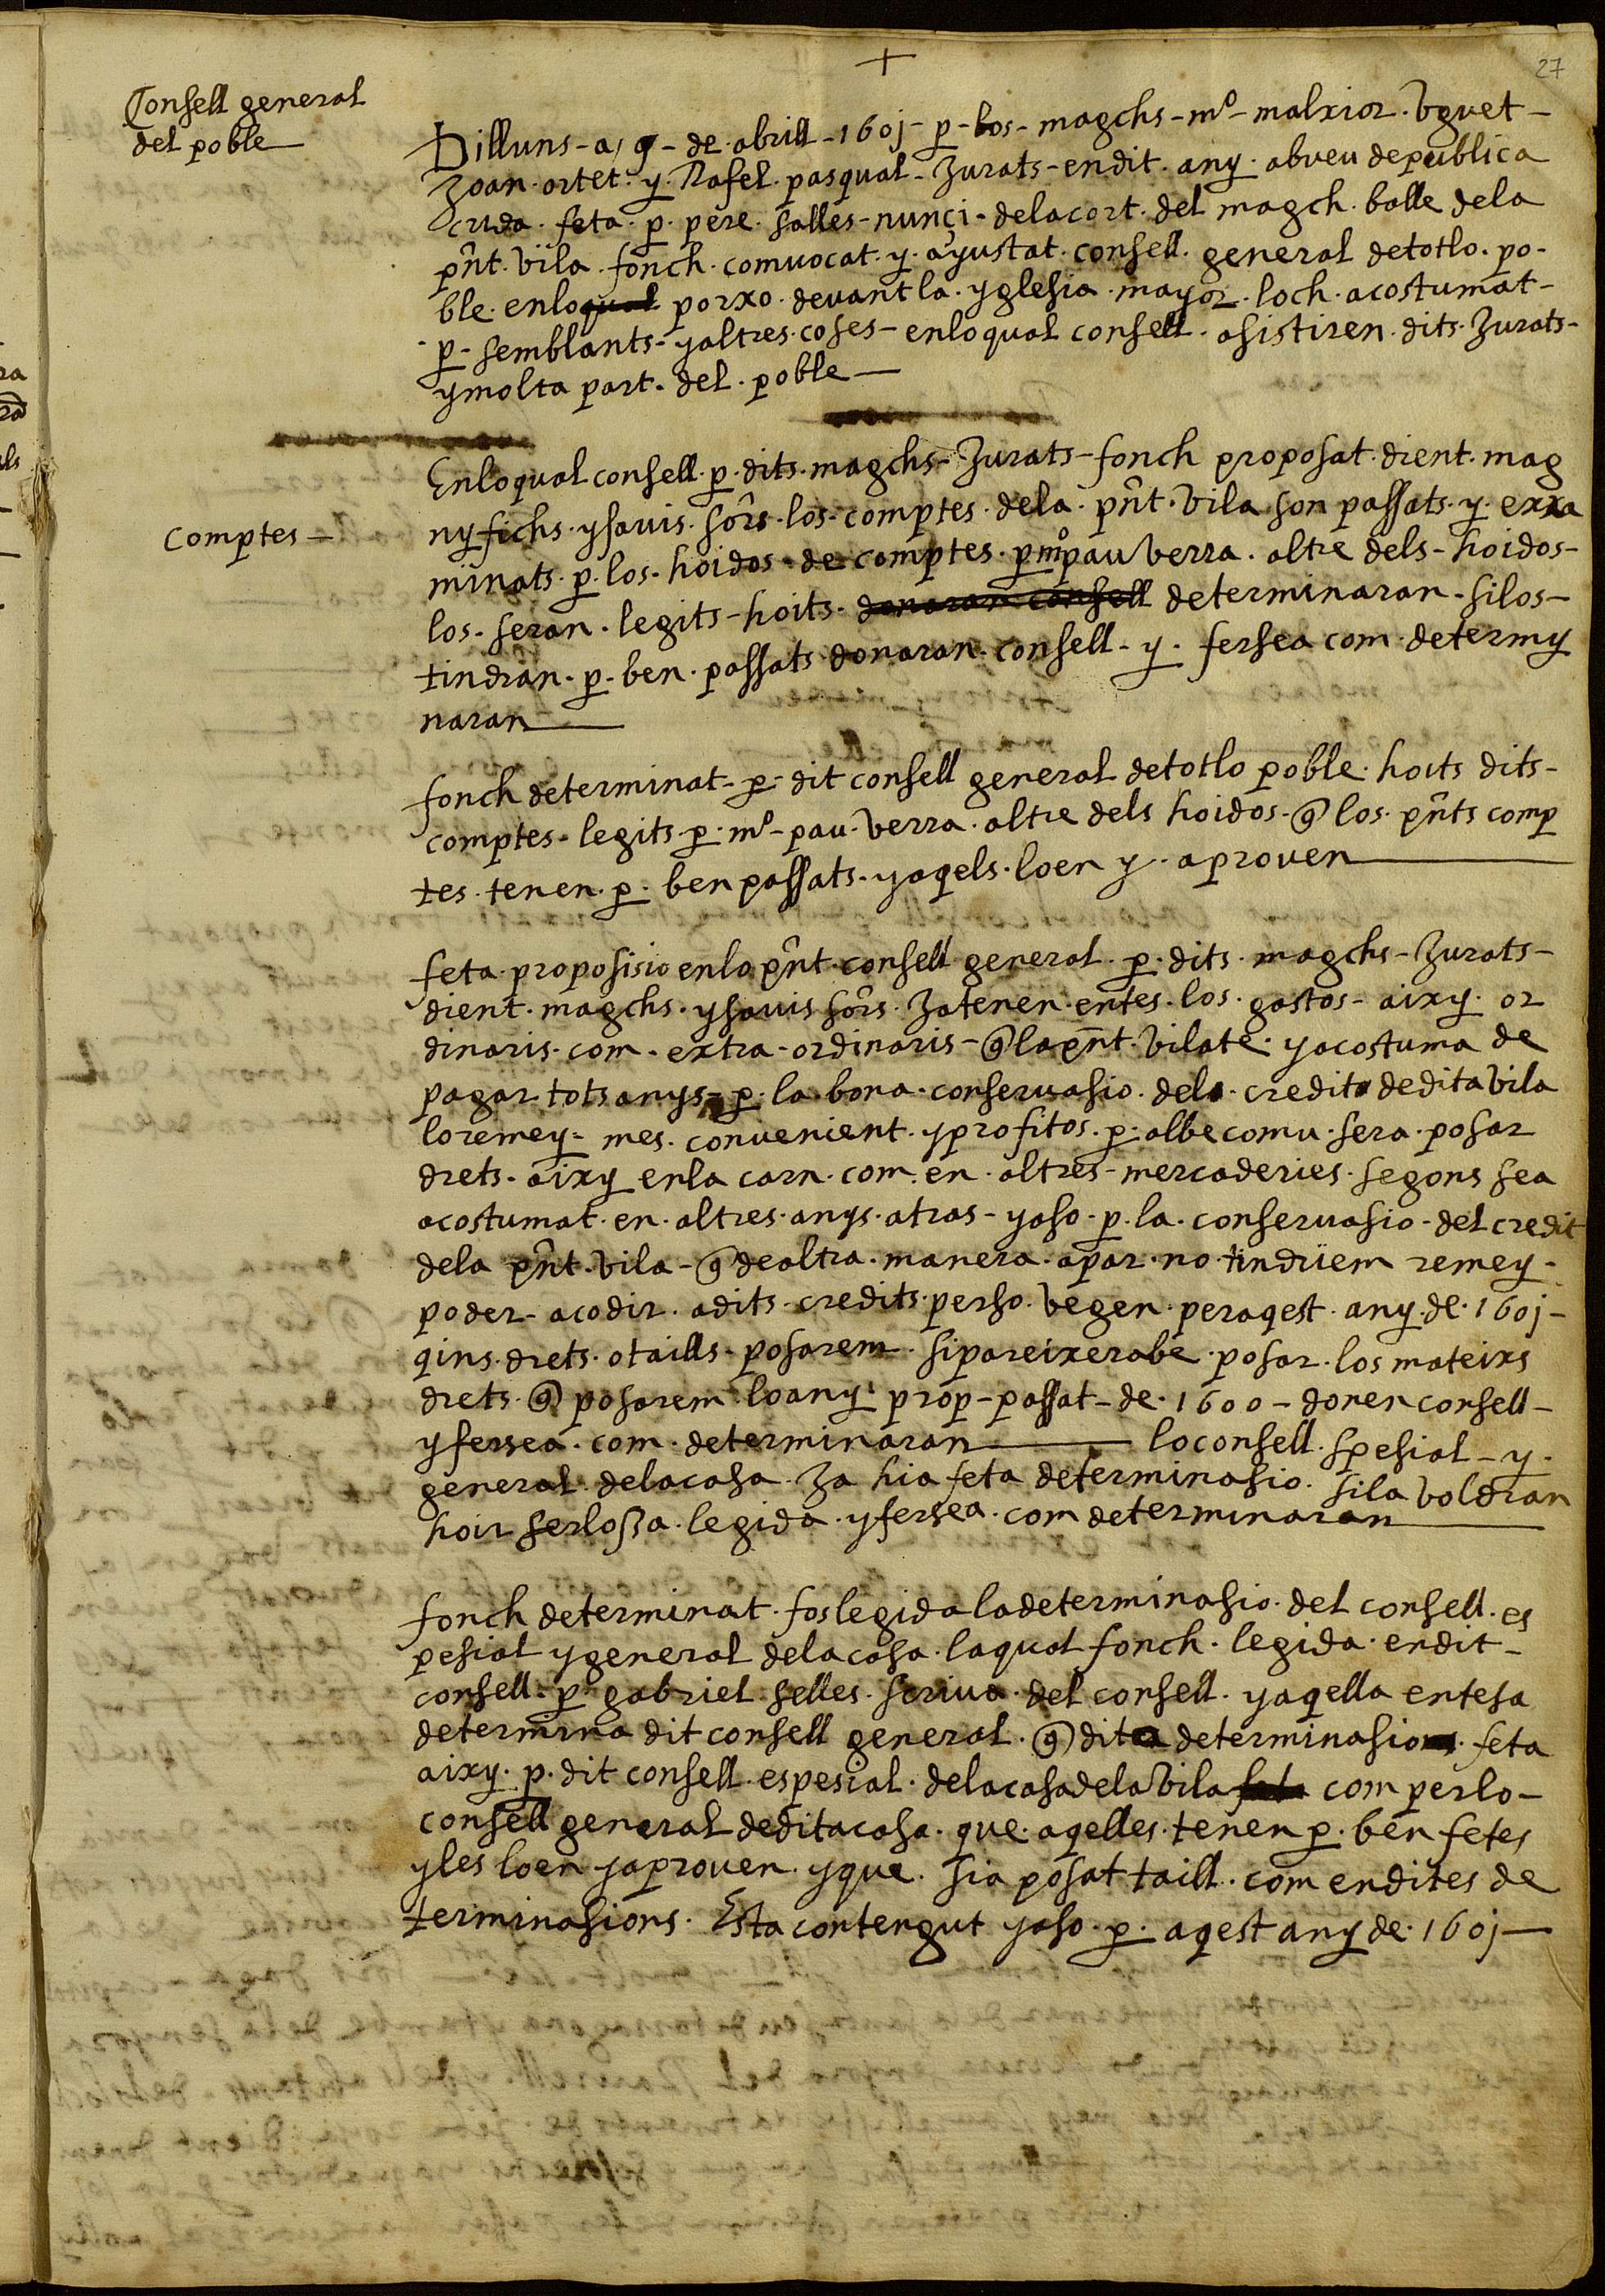 +
27
Consell general
del poble
Dilluns - a 9 - de abrill - 1601 - p - los - magchs - mº - malxior . Vguet -
Joan . ortet . y . Rafel . pasqual - Jurats - endit . any . abveu depublica
crida . feta . p . pere . salles - nunçi - delacort . del magch . balle dela
pñt . vila . fonch . comuocat . y . ayustat . consell . general detotlo . po-
ble . enloqual porxo . devant la . yglesia . mayor . loch . acostumat -
- p - semblants - yaltres . coses - enloqual consell . asistiren . dits . Jurats -
ymolta part . del . poble -
Enloqual consell . p . dits . magchs - Jurats - fonch proposat . dient . mag
comptes -
nyfichs . ysauis . sôrs . los . comptes . dela . pñt . vila son passats . y . exxa
minats . p . los . hoidos - de comptes . p mº pau verra . altre dels - hoidos -
los . seran . legits - hoits . donaran consell determinaran . silos -
tindran . p . ben . passats donaran . consell . y . fersea com . determy
naran -
fonch determinat - p - dit consell general detotlo poble . hoits dits -
comptes - legits . p . mº - pau . verra . altre dels hoidos . q los . pñts comp
tes . tenen . p . ben passats . yaqels . loen y . aproven
feta . proposisio enlo pñt . consell general . p . dits . magchs - Jurats -
dient . magchs . ysauis sôrs . Ja tenen . entes . los . gastos - aixy . or
dinaris . com . extra - ordinaris - q la pñt . vila te . yacostuma de
pagar tots anys - p . la bona . conseruasio . dels . credits dedita vila
loremey - mes . convenient . yprofitos . p . albe comu . sera . posar
drets . aixy enla carn . com . en . altres - mercaderies . segons sea
acostumat . en . altres . anys . atras - yaso . p . la . conseruasio - del credit
dela pñt . vila - q dealtra . manera . apar . no tindriem remey -
poder - acodir . adits . credits . perso . vegen . peraqest . any . de . 1601 -
qins . drets . otaills . posarem . sipareixerabe . posar . los mateixs
drets . q posarem loany prop - passat - de . 1600 - donen consell -
yfersea . com . determinaran - loconsell . spesial - y .
general . delacasa . Ja hia feta determinasio . sila voldran
hoir serlosza . legida . yfersea . com determinaran
fonch determinat . foslegida ladeterminasio . del consell . es
pesial ygeneral delacasa . laqual fonch . legida . endit -
consell . p . gabriel . selles . scriua . del consell . yaqella entesa
determina dit consell general . q dita determinasions . feta
aixy . p . dit consell . espesial . delacasadelavila feta com perlo -
consell general deditacasa . que . aqelles . tenen p . ben fetes
yles loen yaproven . yque . sia posat taill . com endites de
terminasions . Esta contengut yaso . p . aqest any de . 1601 -